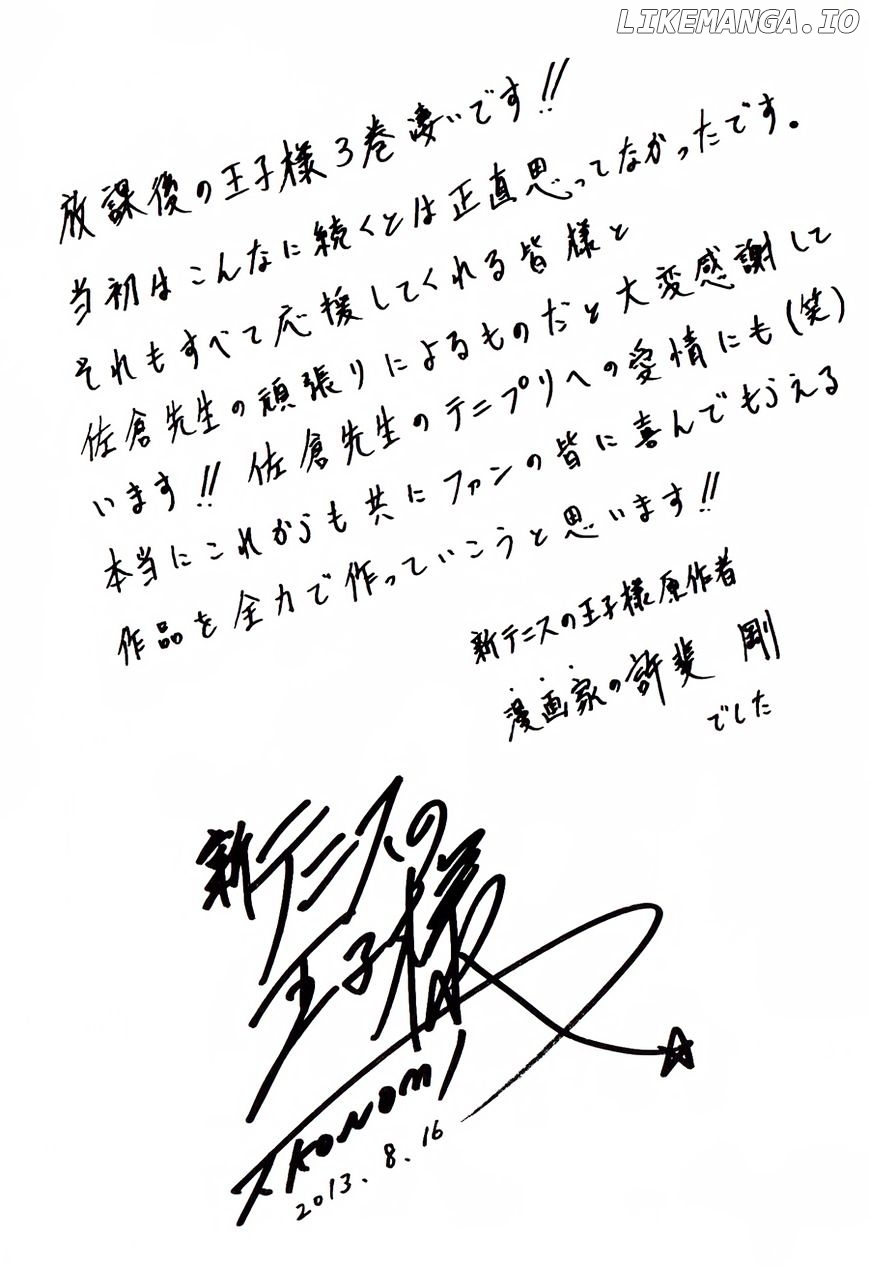 LIKEMANGA.IO
放課後の王子様3巻凄いです!!
当初はこんなに続くとは正直思ってなかったです。
それもすべて応援してくれる皆様と
佐倉先生の頑張りによるものだと大変感謝して
います!! 佐倉先生のテニプリへの愛情にも(笑)
本当にこれからも共にファンの皆に喜んでもらえる
作品を全力で作っていこうと思います!!
新テニスの王子様原作者
漫画家の許斐 剛
でした
新テニスの
王子様
T.KONOMI
2013.8.16